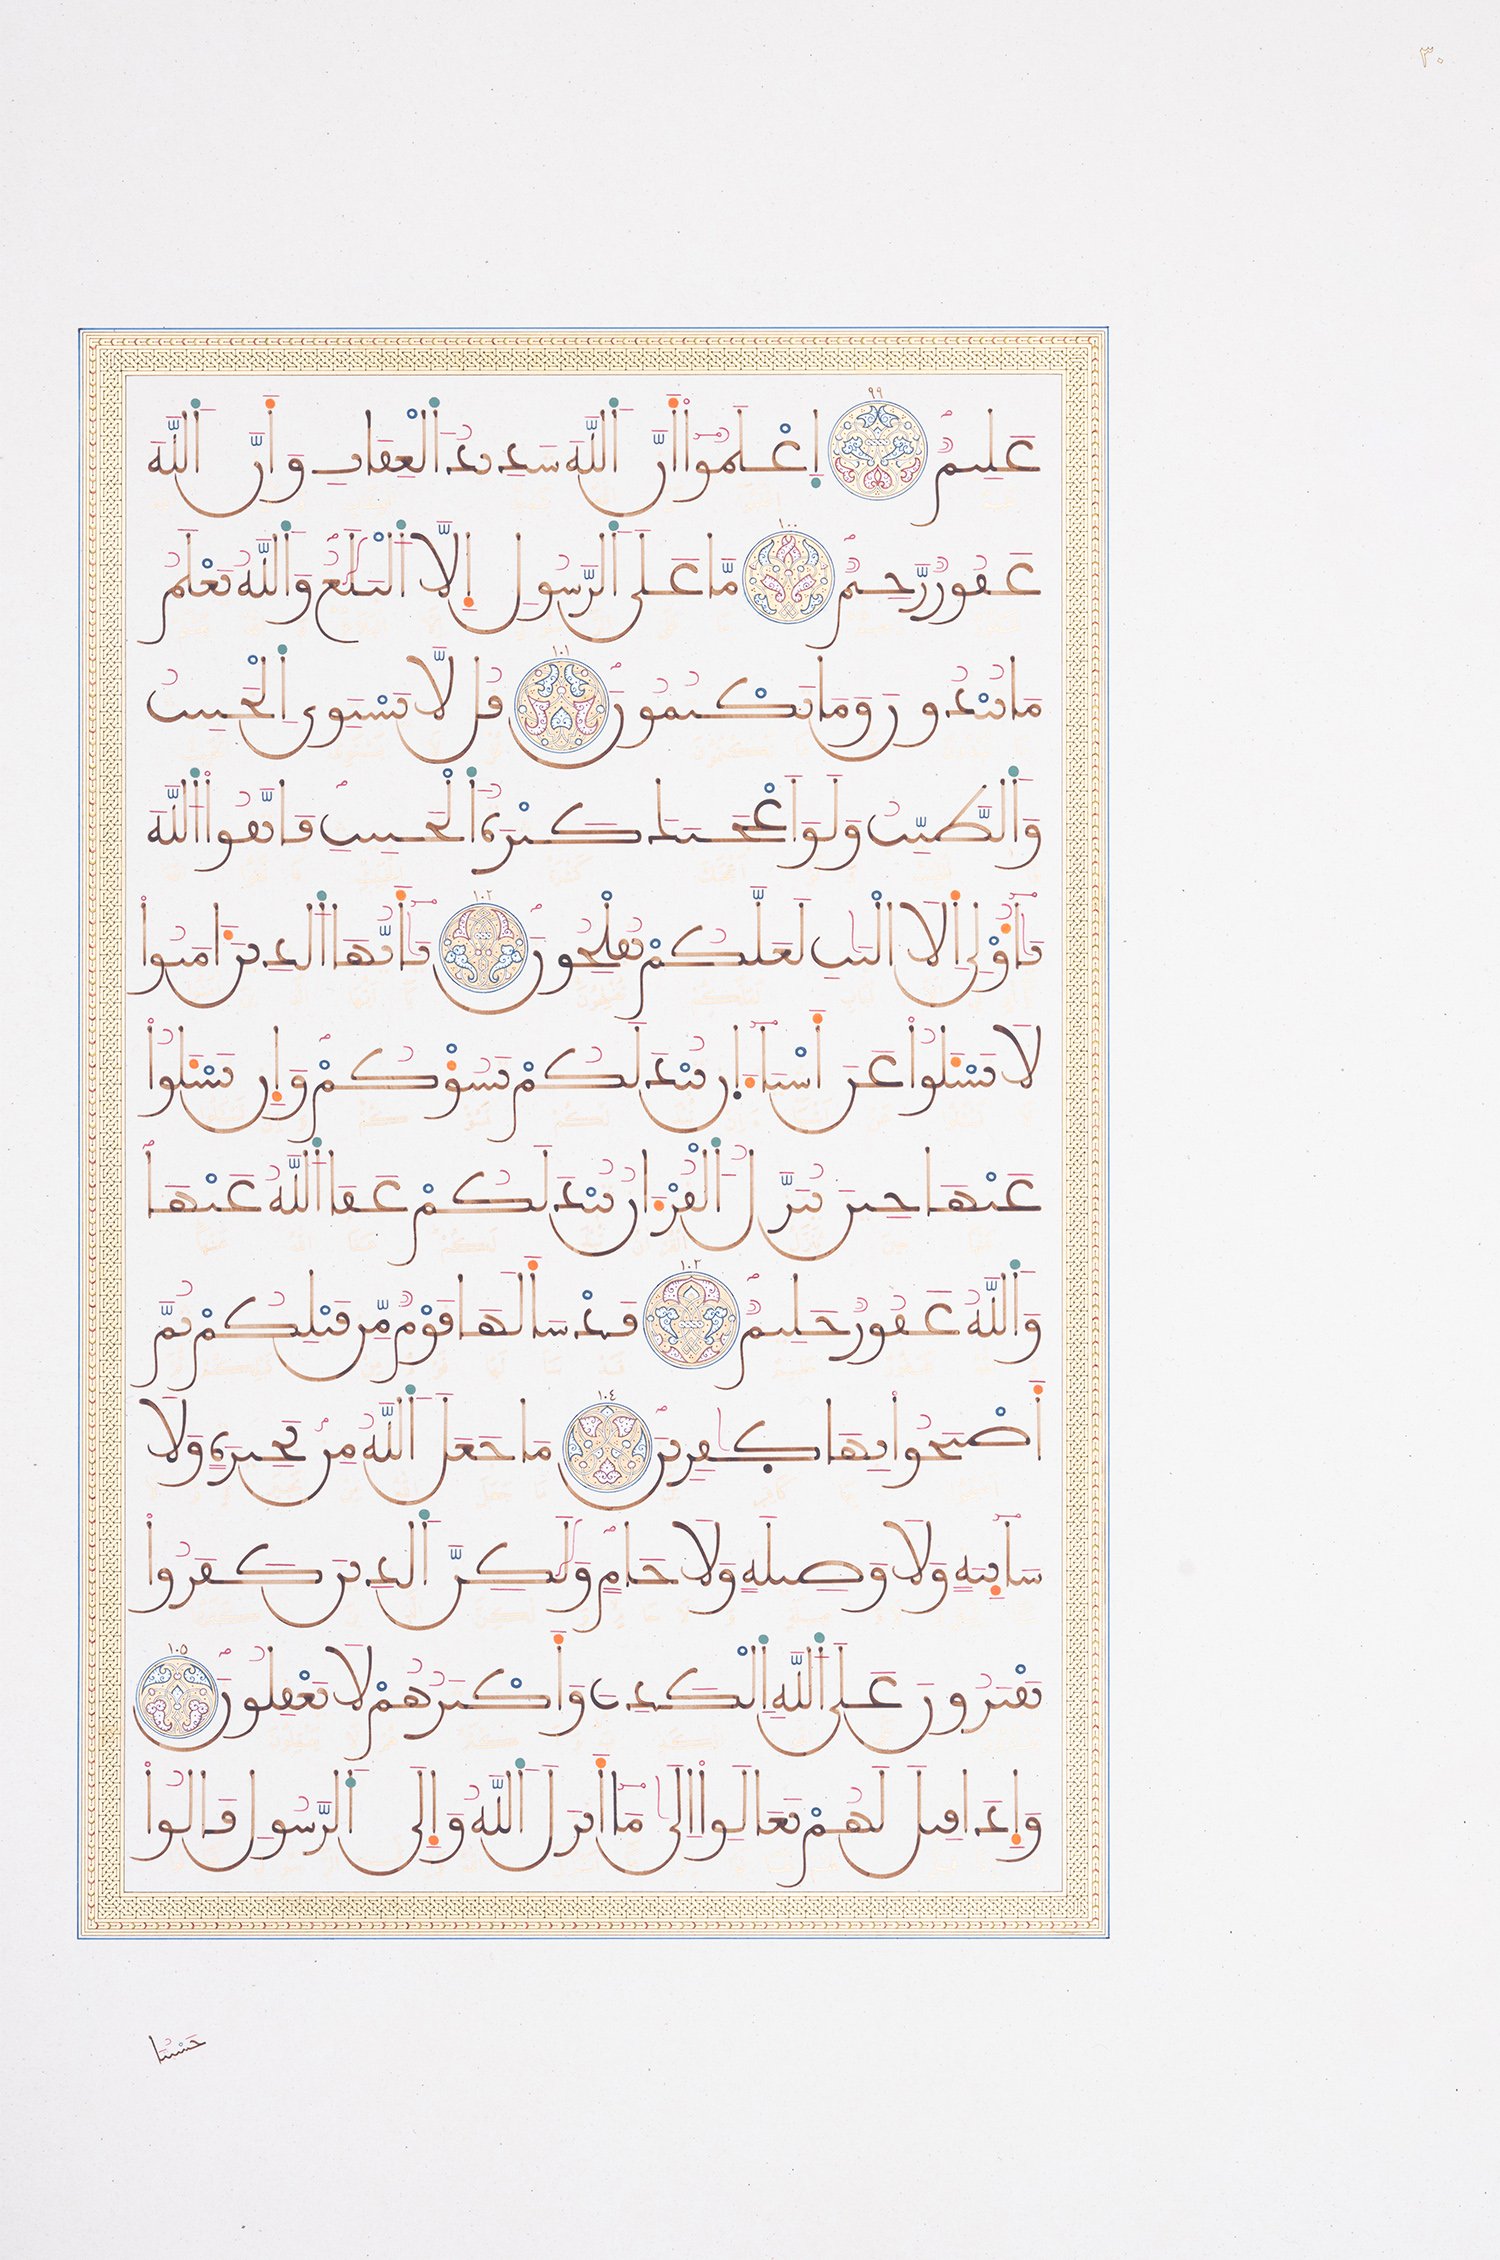 ٣٠
عَلِيمٌ ٩٩ اِعْلَمُوٓاْ أَنَّ اَللَّهَ شَدِيدُ اُلْعِقَابِ وَأَنَّ اَللَّهَ
غَفُورٌ رَّحِيمٌ ١٠٠ مَّا عَلَى اَلرَّسُولِ إِلَّا اَلْبَلَٰغُ وَاللَّهُ يَعْلَمُ
مَا تُبْدُونَ وَمَا تَكْتُمُونَ ١٠١ قُل لَّا يَسْتَوِى اِلْخَبِيثُ
وَالطَّيِّبُ وَلَوَ اَعْجَبَكَ كَثْرَةُ اُلْخَبِيثِ فَاتَّقُواْ اُللَّهَ
يَٰٓأُوْلِى اِلَالْبَٰبِ لَعَلَّكُمْ تُفْلِحُونَ ١٠٢ يَٰٓأَيُّهَا اَلذِينَ ءَامَنُواْ
لَا تَسْـَٔلُواْ عَنَ اَشْيَآءَ ان تُبْدَ لَكُمْ تَسُؤْكُمْ وَإِن تَسْـَٔلُواْ
عَنْهَا حِينَ يُنَزَّلُ اُلْقُرْءَانُ تُبْدَ لَكُمْ عَفَا اَللَّهُ عَنْهَا
وَاللَّهُ غَفُورٌ حَلِيمٌ ١٠٣ قَدْ سَأَلَهَا قَوْمٌ مِّن قَبْلِكُمْ ثُمَّ
أَصْبَحُواْ بِهَا كَٰفِرِينَ ١٠٤ مَا جَعَلَ اَللَّهُ مِنۢ بَحِيرَةٍ وَلَا
سَآئِبَةٍ وَلَا وَصِيلَةٍ وَلَا حَامٍ وَلَٰكِنَّ اَلذِينَ كَفَرُواْ
يَفْتَرُونَ عَلَى اَللَّهِ اِلْكَذِبَ وَأَكْثَرُهُمْ لَا يَعْقِلُونَ ١٠٥
وَإِذَا قِيلَ لَهُمْ تَعَالَوِاْ اِلَىٰ مَآ أَنزَلَ اَللَّهُ وَإِلَى اَلرَّسُولِ قَالُواْ
حَسْبُنَا